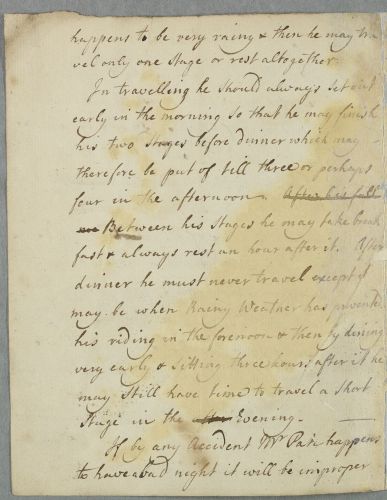 happens to be very rainy & then he may tra
vel only one Stage or rest altogether.
In travelling he should always set out
early in the morning so that he may finish
his two Stages before dinner which may
therefore be put of till three or perhaps
four in the afternoon. After his full
Between his Stages he may take break
fast & always rest an hour after it. After
dinner he must never travel except it
may be when Rainy Weather has prevented
his riding in the forenoon & then by dining
very early & sitting three hours after it he
may still have time to travel a Short
Stage in the Evening.
If by any Accident Mr happens
to have a bad night it will be improper